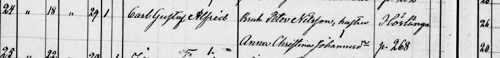 24 " 18 " 29 1 Carl Gustaf Alfred Bruk. Peter Nilsson, hustru i Hörlänga 26
Anna Christina Johannesdr p. 268
25 " 22 20